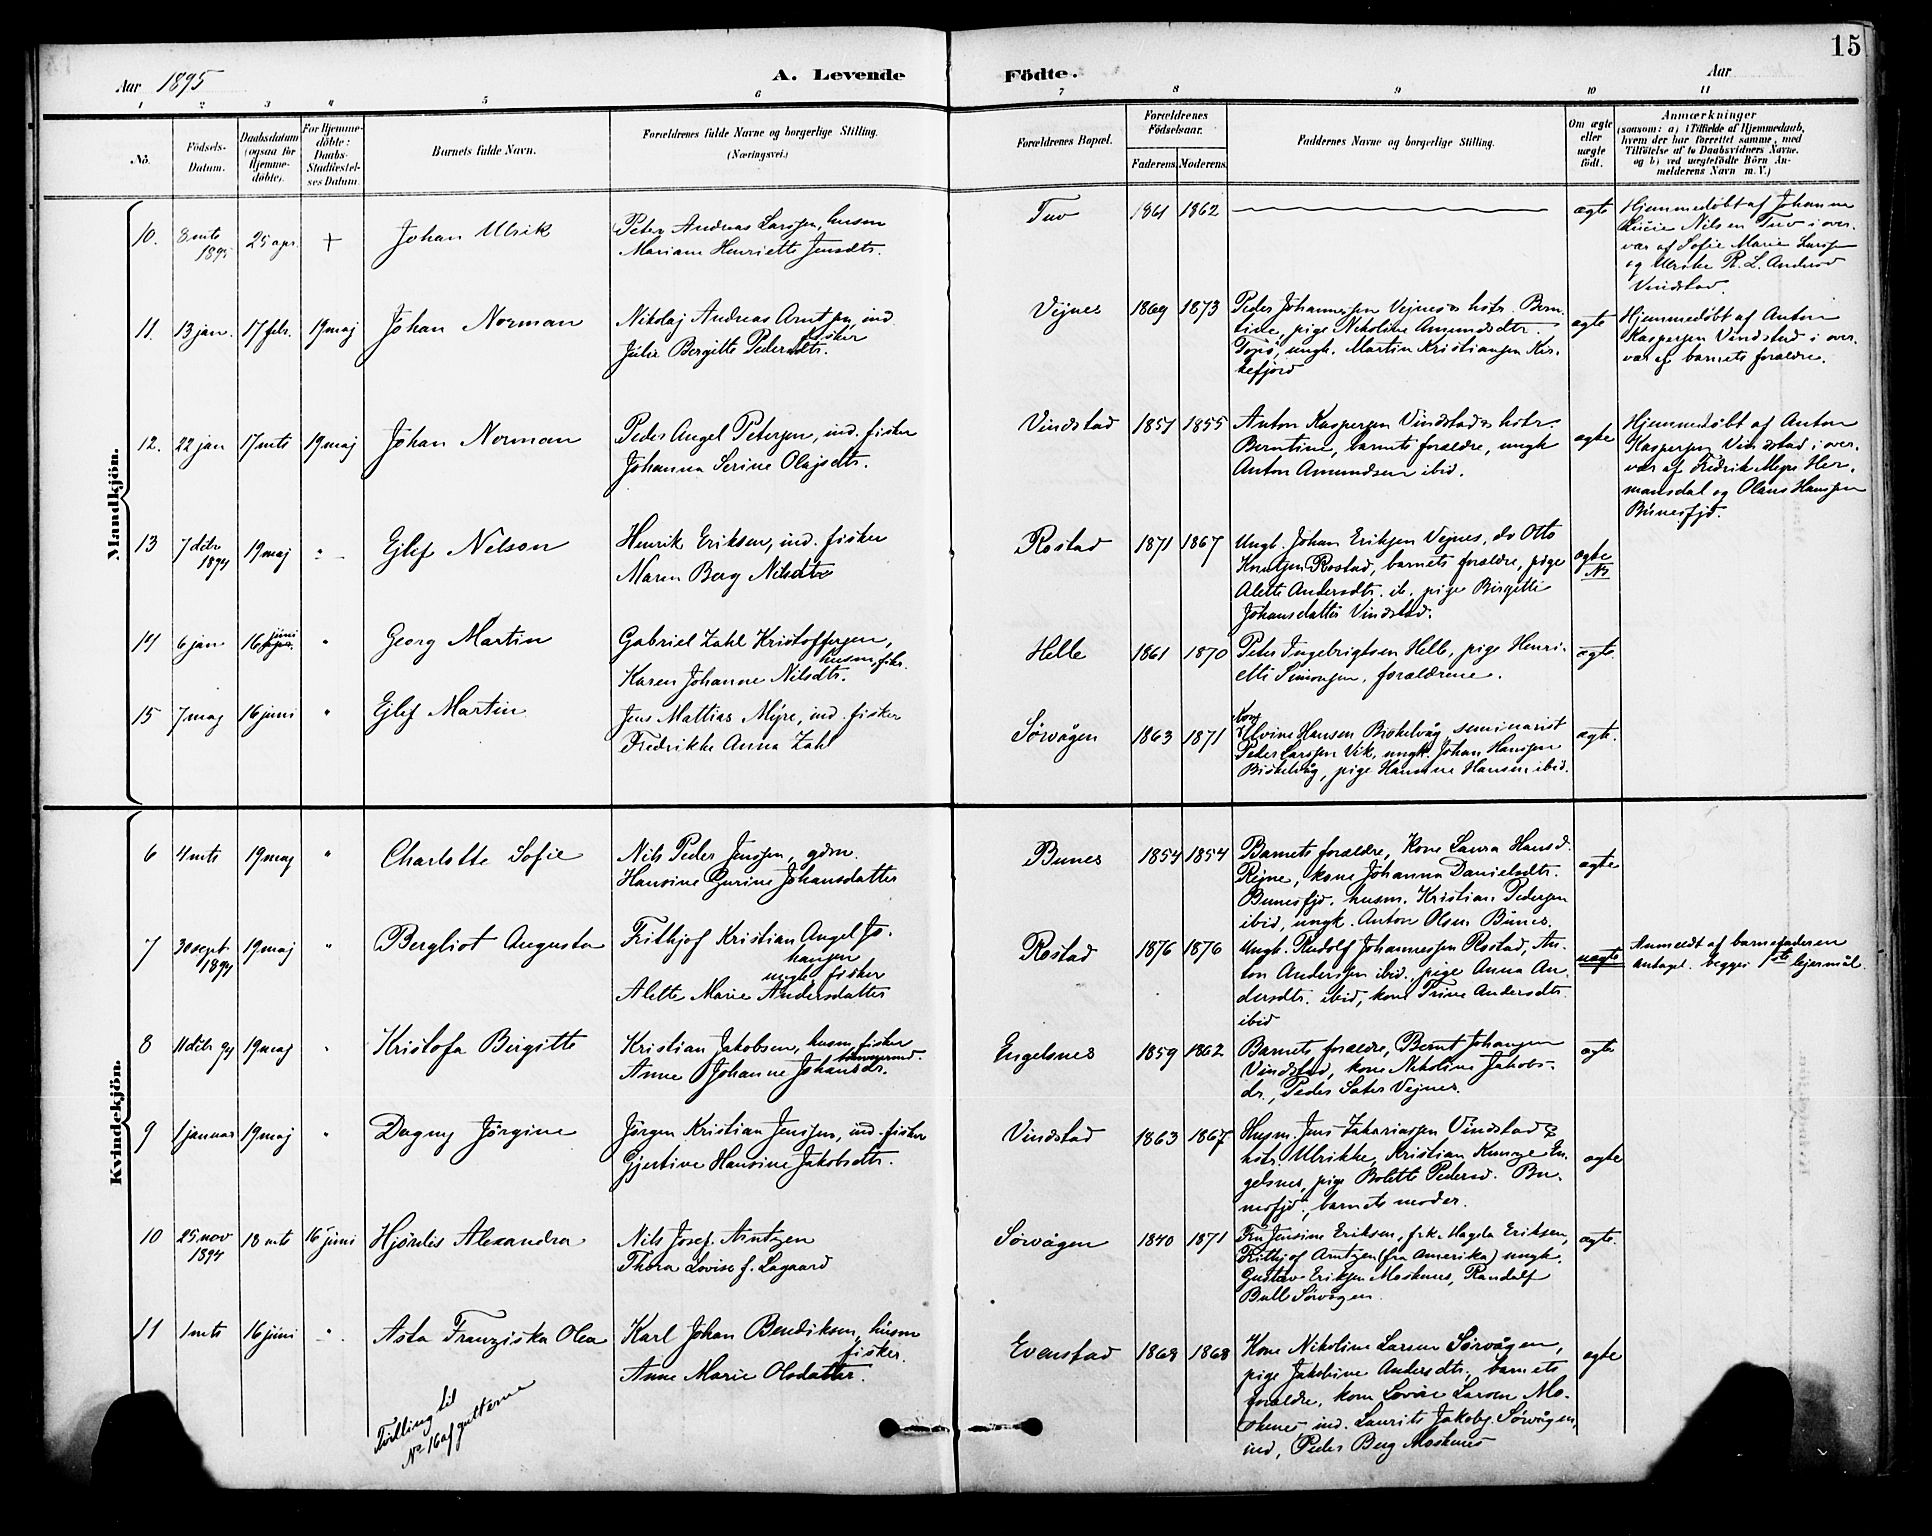 15
Aar 1895
A. Levende
Födte.
Aar
1 2 3 4 5 6 7 8 9 10 11
No.
Födsels-
Datum.
Daabsdatum
(ogsaa for
Hjemme-
döbte).
For Hjemme-
döbte:
Daabs-
Stadfæstel-
ses Datum.
Barnets fulde Navn.
Forældrenes fulde Navne og borgerlige Stilling.
(Næringsvei.)
Forældrenes Bopæl.
Forældrenes
Födselsaar.
Faderens.
Moderens.
Faddernes Navne og borgerlige Stilling.
Om ægte
eller
uægte
födt.
Anmærkninger
(saasom: a) i Tilfælde af Hjemmedaab,
hvem der har forrettet samme, med
Tilföielse af to Daabsvidners Navne,
og b) ved uægtefödte Börn An-
melderens Navn m. V.)
Mandkjön.
10. 8 mts 1895 25 apr. + Johan Ulrik
Peter Andreas Larssen, husm
Mariane Henriette Jensdtr.
Tuv 1861 1862 ægte
Hjemmedøbt af Johanne
Lucie Nilsen Tuv i over-
vær af Sofie Marie Larssen
og Ulrike P. L. Andersd
Vindstad
11. 13 jan. 17 febr. 19 maj Johan Norman
Nikolaj Andreas Arntzen, ind
fisker
Julie Bergitte Pedersdtr.
Vejnes 1869 1873
Peder Johannessen Vejnes & hstr. Bern-
tine, pige Nikoline Amundsdtr.
Topö, ungk. Martin Kristiansen Kir-
kefjord
ægte
Hjemmedøbt af Anton
Kaspersen Vindstad i over-
vær af barnets forældre.
12. 22 jan 17 mts 19 maj Johan Norman
Peder Angel Petersen, ind. fisker
Johanna Serine Olajsdtr.
Vindstad 1851 1855
Anton Kaspersen Vindstad & hstr.
Berntine, barnets forældre, ungk
Anton Amundsen ibid.
ægte
Hjemmedøbt af Anton
Kaspersen Vindstad i over-
vær af Fredrik Meyer Her-
mansdal og Olaus Hanssen
Bunesfjd.
13 7 dcbr 1894 19 maj Ejlif Nelson
Henrik Eriksen, ind. fisker
Maren Berg Nilsdtr
Rostad 1871 1867
Ungk. Johan Eriksen Vejnes, do Otto
Knutzen Rostad, barnets forældre, pige
Alette Andersdtr. ib., pige Birgitte
Johansdatter Vindstad.
ægte
14 6 jan 16 juni Georg Martin
Gabriel Zahl Kristoffersen,
husm. fskr.
Karen Johanne Nilsdtr.
Helle 1861 1870
Peter Ingebrigtsen Helle, pige Henri-
ette Simonsen, forældrene.
ægte.
15 7 maj 16 juni Ejlif Martin
Jens Mattias Myre, ind. fisker
Fredrikke Anna Zahl
Sørvågen 1863 1871
Kone
Elvine Hansen Birkelvåg seminarist
Peder Larssen Vik, ungk. Johan Hanssen
Birkelvåg, pige Hansine Hansen ibid.
ægte.
Kvindekjön.
6 4 mts 19 maj " Charlotte Sofie
Nils Peder Jenssen, gdm.
Hansine Gurine Johansdatter
Bunes 1854 1854
Barnets forældre, Kone Laura Hansd.
Rejne, kone Johanna Danielsdtr.
Bunesfjd. husm. Kristian Pedersen
ibid, ungk. Anton Olsen Bunes.
ægte
7 30 sept. 1894 19 maj " Bergliot Augusta
Frithjof Kristian Angel Jo-
hansen
ungk. fisker
Alette Marie Andersdatter
Rostad 1876 1876
Ungk. Rudolf Johannessen Rostad, An-
ton Anderssen ibid., pige Anna An-
dersdtr. ibid, kone Trine Andersdtr.
ibid
uægte
Anmeldt af barnefaderen
antagel. begges 1ste lejermål.
8 11 dcbr 94 19 maj Kristofa Birgitte
Kristian Jakobsen, husm. fisker
Anne Johanne Johansdr.
Engelsnes 1859 1862
Barnets forældre, Bernt Johansen
Vindstad, kone Nikoline Jakobs-
dr., Peder Sater Vejnes.
ægte
9 1 januar 19 maj " Dagny Jörgine
Jörgen Kristian Jenssen, ind. fisker
Gjertine Hansine Jakobsdtr.
Vindstad 1863 1867
Husm. Jens Zakariassen Vindstad &
hstr. Ulrikke, Kristian Kummge En-
gelsnes, pige Bolette Pedersd. Bu-
nesfjd., barnets moder.
ægte
10 25 nov 1894 18 mts 16 juni Hjørdis Alexandra
Nils Josef Arntzen
Thora Lovise f. Lagaard
Sørvågen 1840 1871
Fru Jensine Eriksen, frk. Magda Eriksen,
Frithjof Arntzen (fra Amerika) ungk.
Gustav Eriksen Moskenes, Randolf
Bull Sørvågen.
ægte.
11 1 mts 16 juni Asta Franziska Olea
Karl Johan Bendiksen, husm
fisker.
Anne Marie Olsdatter.
Evenstad 1868 1868
Kone Nikoline Larsen Sørvågen,
pige Jakobine Andersdtr, barnets
forældre, kone Lovise Larsen Mo-
skenes ind. Laurits Jakobs. Sørvågen,
ind, Peder Berg Moskenes
ægte
Tvilling til
No 16 af guttene